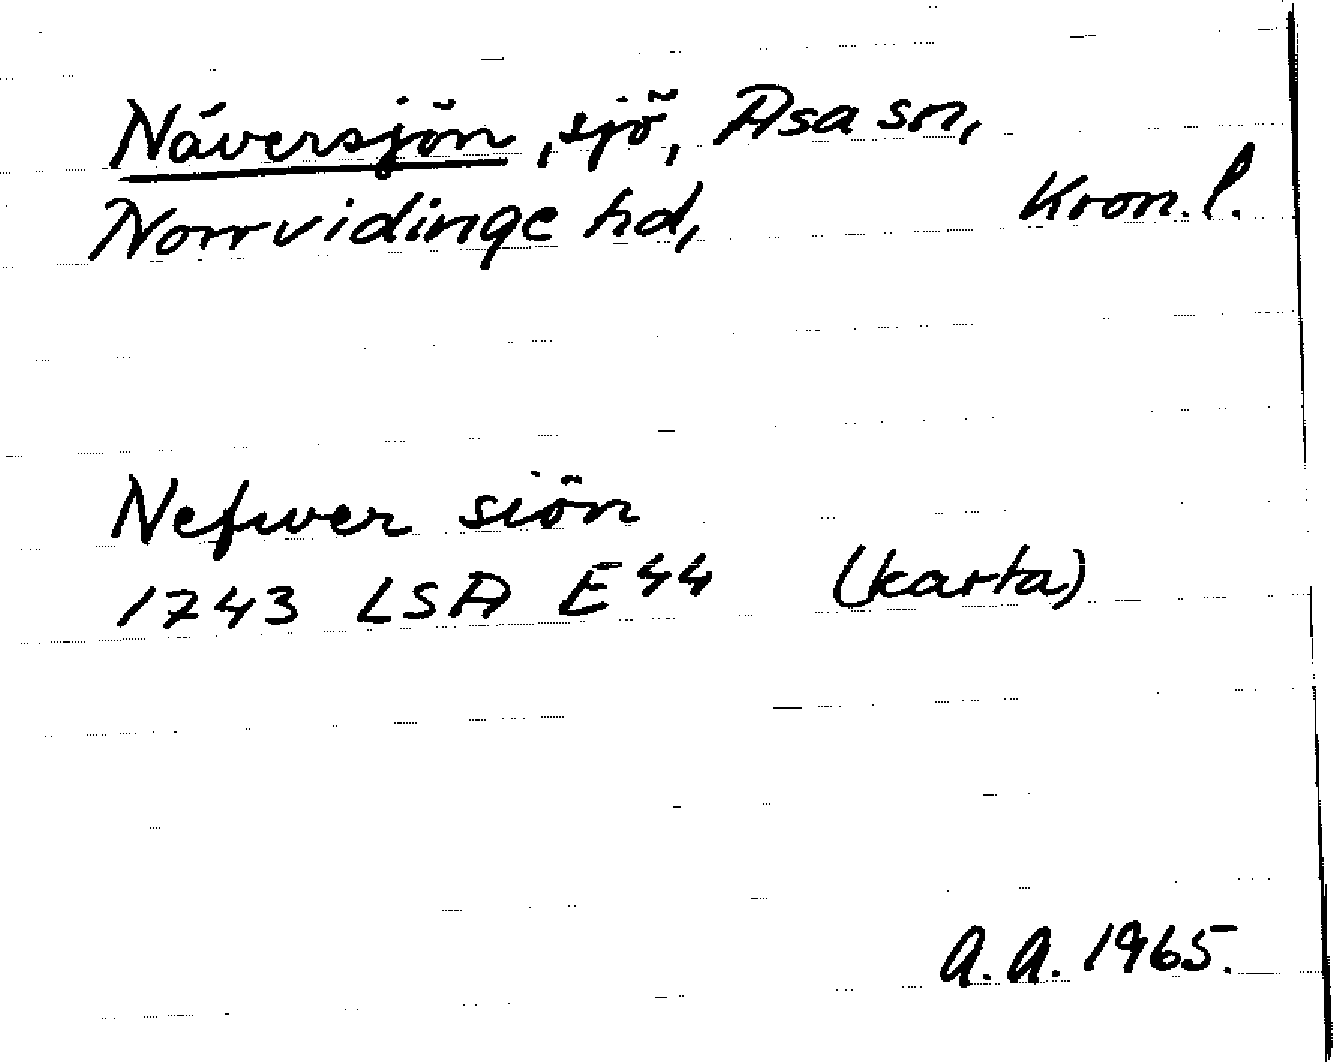 Näversjön, sjö, Asa sn,
Norrvidinge hd, Kron. l.
Nefwer siön
1743 LSA E44 (karta)
A.A. 1965.